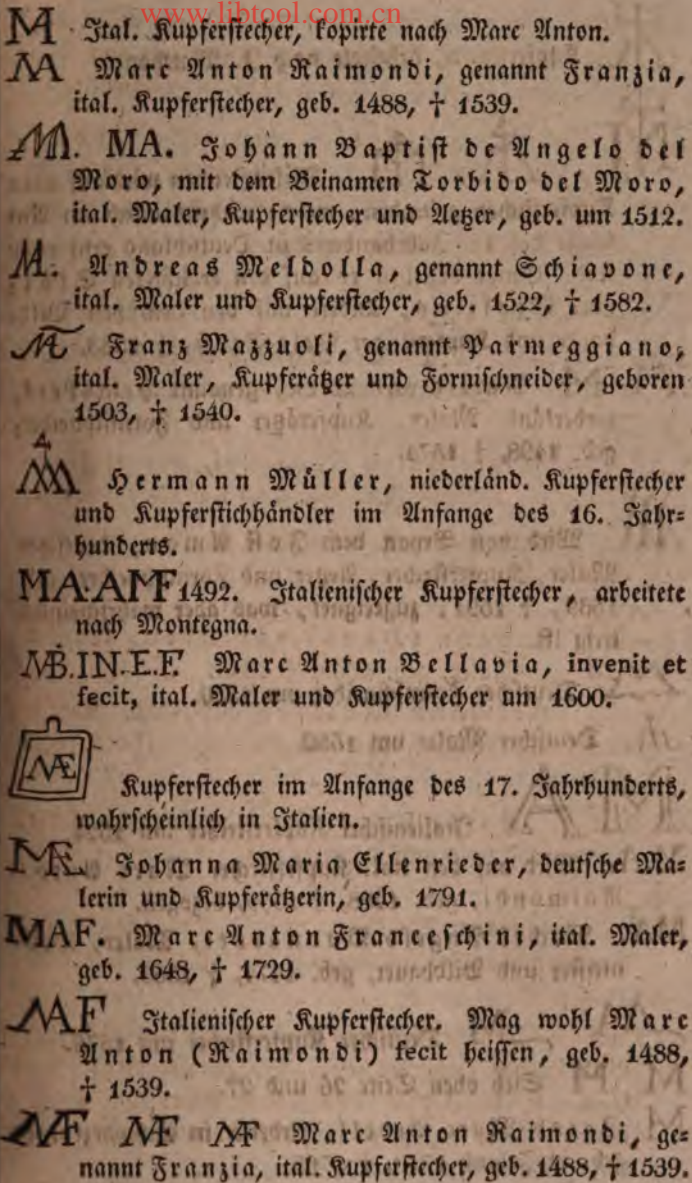 www.libtool.com.cn
M Ital. Kupferstecher, kopirte nach Marc Anton.
MA Marc Anton Raimondi, genannt Franzia,
ital. Kupferstecher, geb. 1488, † 1539.
MA. MA. Johann Baptist de Angelo del
Moro, mit dem Beinamen Torbido del Moro,
ital. Maler, Kupferstecher und Aetzer, geb. um 1512.
M. Andreas Meldolla, genannt Schiavone,
ital. Maler und Kupferstecher, geb. 1522, † 1582.
Franz Mazzuoli, genannt Parmeggiano,
ital. Maler, Kupferätzer und Formschneider, geboren
1503, † 1540.
Hermann Müller, niederländ. Kupferstecher
und Kupferstichhändler im Anfange des 16. Jahr=
hunderts.
MA·AMF 1492. Italienischer Kupferstecher, arbeitete
nach Montegna.
MB.IN.E.F. Marc Anton Bellavia, invenit et
fecit, ital. Maler und Kupferstecher um 1600.
Æ Kupferstecher im Anfange des 17. Jahrhunderts,
wahrscheinlich in Italien.
Johanna Maria Ellenrieder, deutsche Ma=
lerin und Kupferätzerin, geb. 1791.
MAF. Marc Anton Franceschini, ital. Maler,
geb. 1648, † 1729.
MF Italienischer Kupferstecher. Mag wohl Marc
Anton (Raimondi) fecit heissen, geb. 1488,
† 1539.
MF MF MF Marc Anton Raimondi, ge=
nannt Franzia, ital. Kupferstecher, geb. 1488, † 1539.